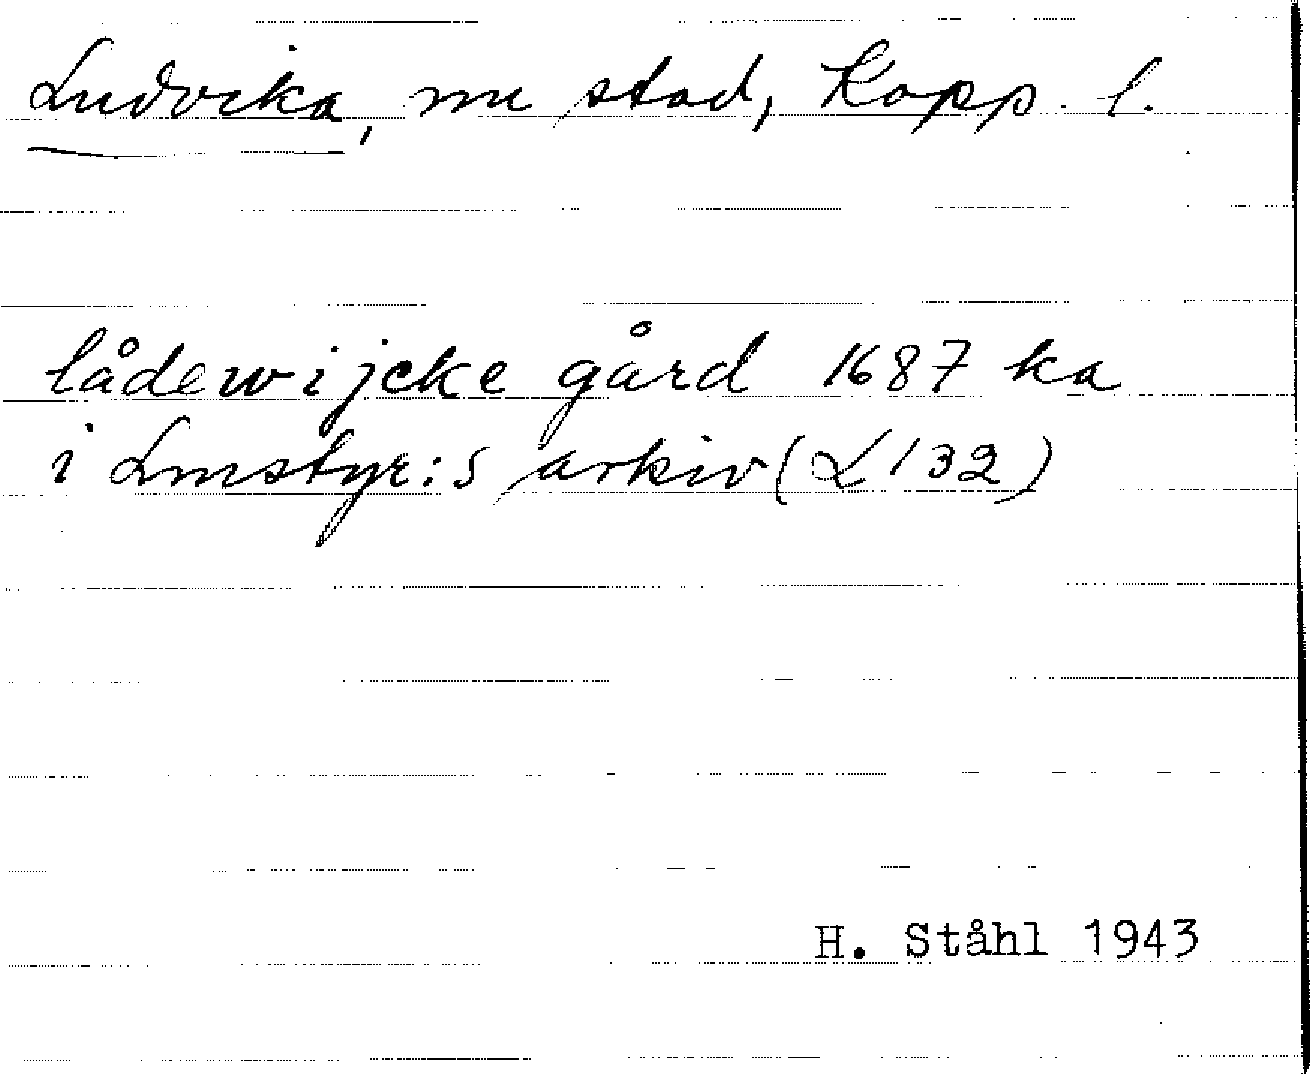 Ludvika, nu stad, Kopp. l.
lådewijcke gård 1687 ka
i Lmstyr:s arkiv (L 132)
H. Ståhl 1943